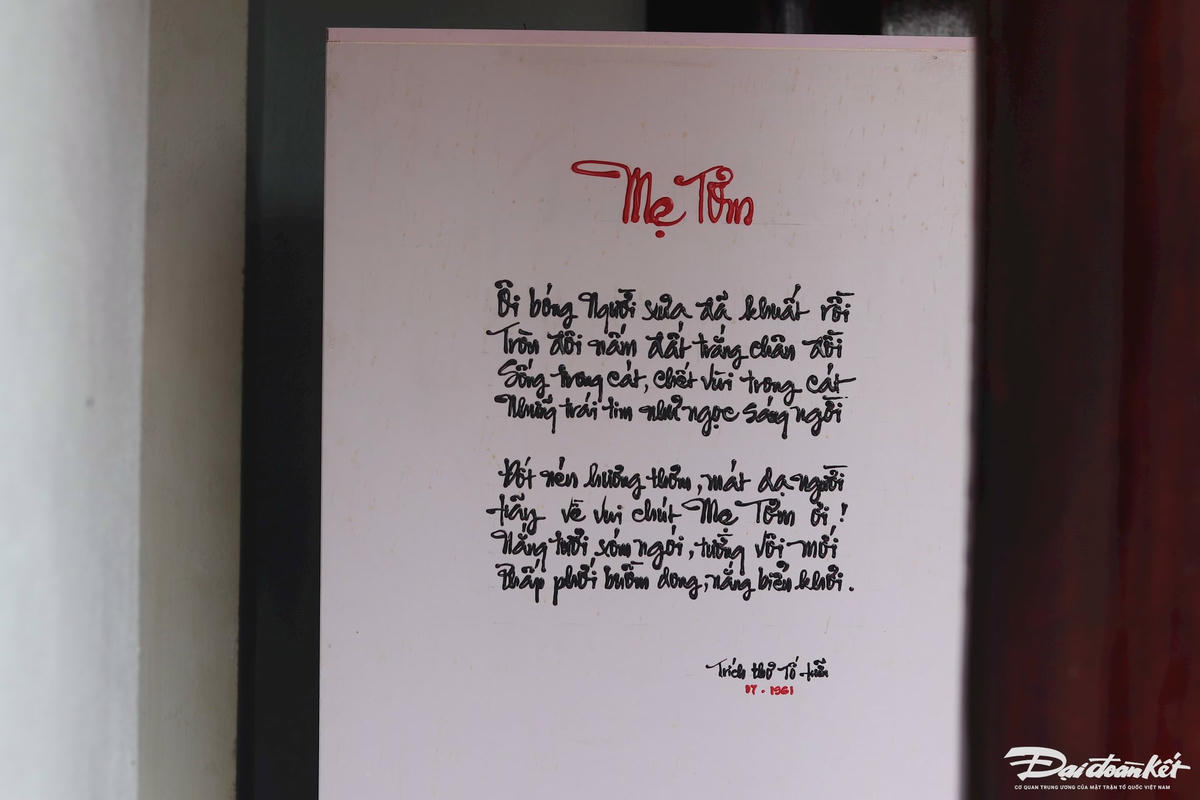 Mẹ Tơm
Ôi bóng Người xưa đã khuất rồi
Tròn đôi nấm đất trắng chân đồi
Sống trong cát, chết vùi trong cát
Những trái tim như ngọc sáng ngời
Đốt nén hương thơm, mát dạ người
Hãy về vui chút Mẹ Tơm ơi!
Nắng tươi xóm ngói, tường vôi mới
Phấp phới buồm dong, nắng biển khơi.
Trích thơ Tố Hữu
17 · 1961
Đại đoàn kết
CƠ QUAN TRUNG ƯƠNG CỦA MẶT TRẬN TỔ QUỐC VIỆT NAM